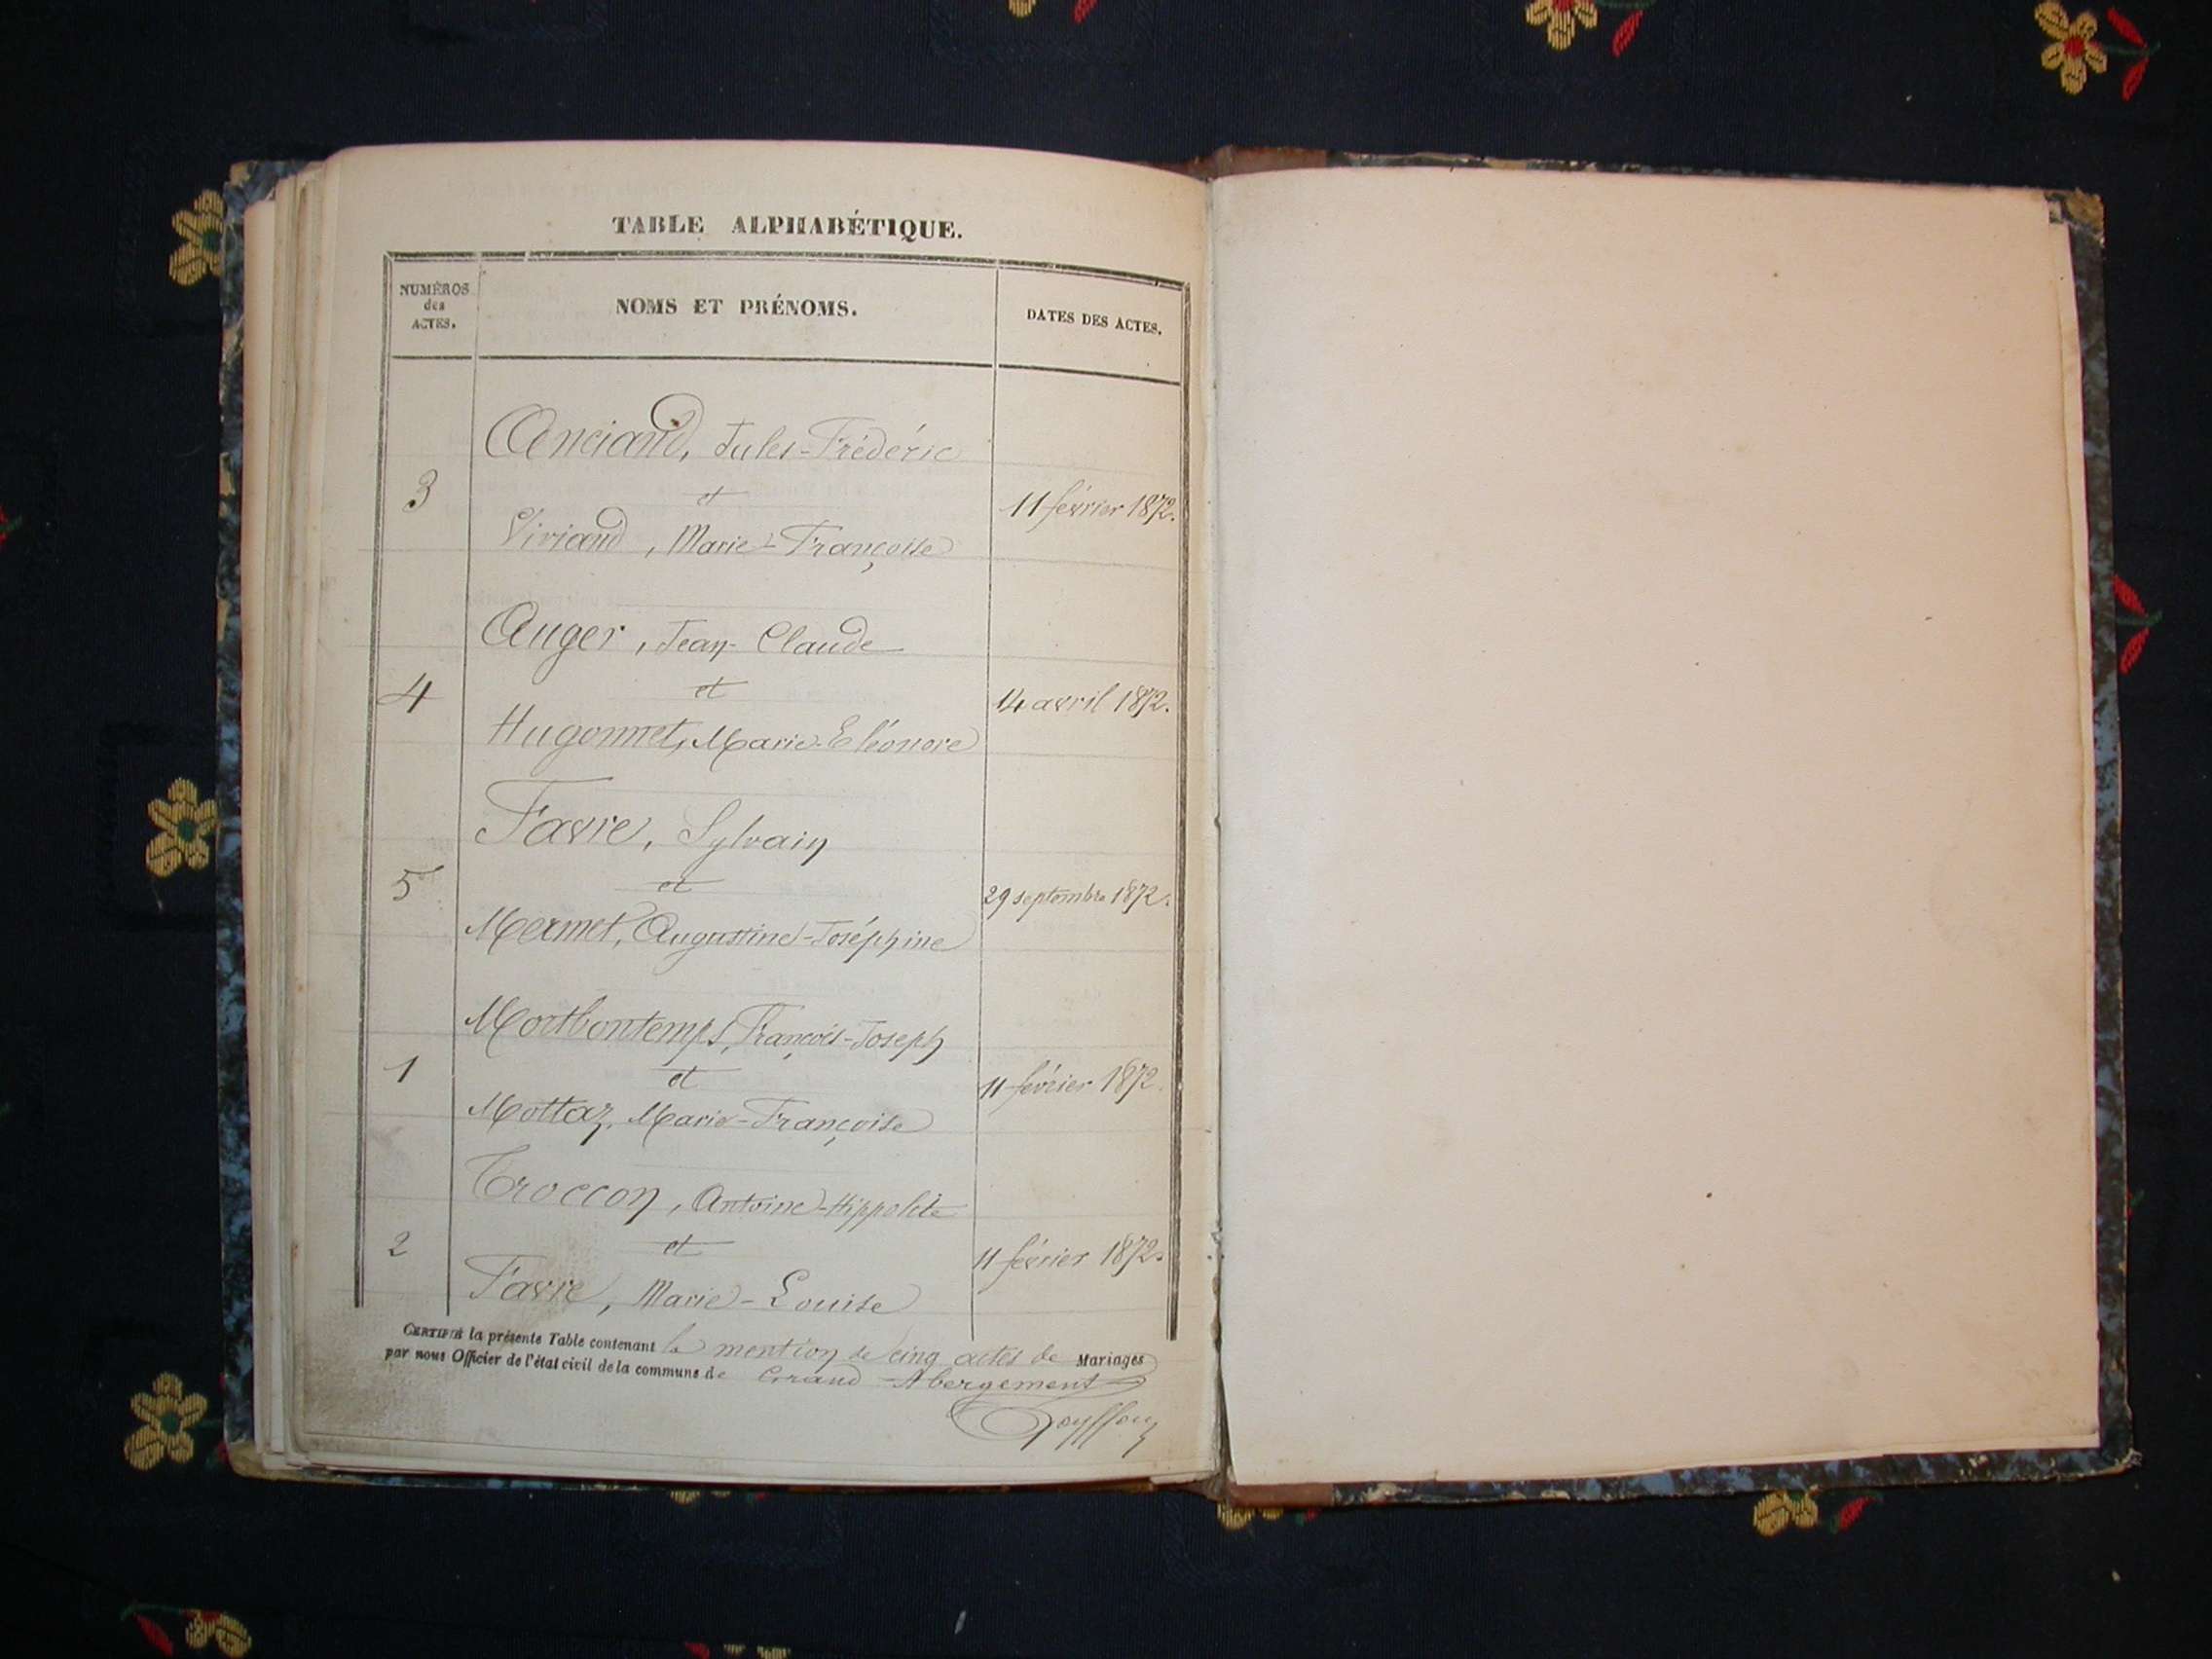 TABLE ALPHABÉTIQUE.
NUMÉROS des ACTES.
NOMS ET PRÉNOMS.
DATES DES ACTES.
Anciand, Jules-Frédéric
3 et 11 février 1872.
Viviand, Marie-Françoise
Auger, Jean-Claude
4 et 14 avril 1872.
Hugonnet, Marie-Eléonore
Favre, Sylvain
5 et 29 septembre 1872.
Mermet, Augustine-Joséphine
Mortbontemps, François-Joseph
1 et 11 février 1872.
Mottaz, Marie-Françoise
Troccon, Antoine-Hippolite
2 et 11 février 1872.
Favre, Marie-Louise
CERTIFIÉ la présente Table contenant la mention de cinq actes de Mariages
par nous Officier de l'état civil de la commune de Grand-Abergement